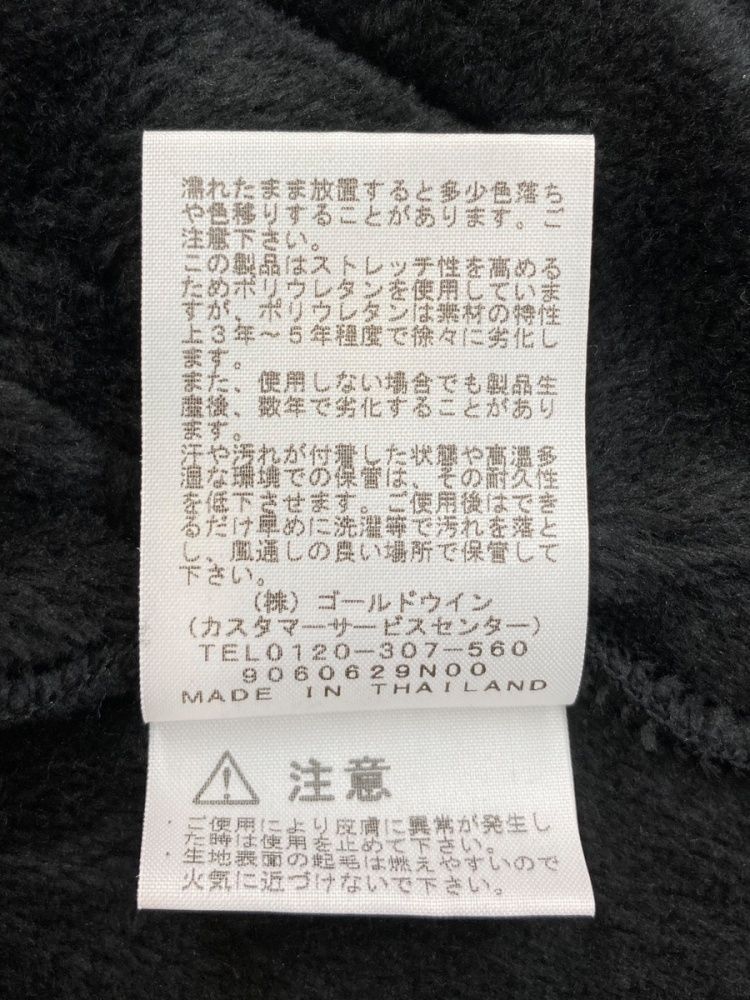 濡れたまま放置すると多少色落ち
や色移りすることがあります。ご
注意下さい。
この製品はストレッチ性を高める
ためポリウレタンを使用していま
すが、ポリウレタンは素材の特性
上3年～5年程度で徐々に劣化し
ます。
また、使用しない場合でも製品生
産後、数年で劣化することがあり
ます。
汗や汚れが付着した状態や高温多
湿な環境での保管は、その耐久性
を低下させます。ご使用後はでき
るだけ早めに洗濯等で汚れを落と
し、風通しの良い場所で保管して
下さい。
(株)ゴールドウイン
(カスタマーサービスセンター)
TEL0120-307-560
9060629N00
MADE IN THAILAND
注意
ご使用により皮膚に異常が発生し
た時は使用を止めて下さい。
生地表面の起毛は燃えやすいので
火気に近づけないで下さい。